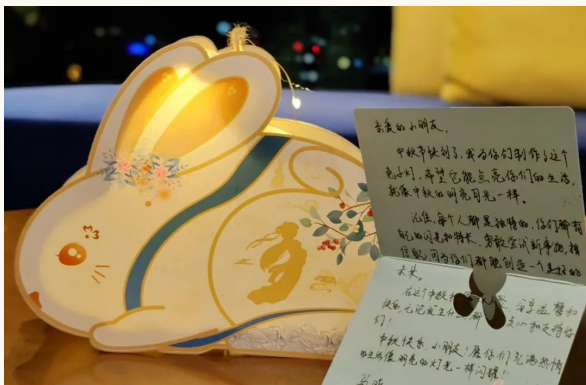 亲爱的小朋友，
中秋节快到了，我为你们制作了这个
兔子灯，希望它能点亮你们的生活，
就像中秋的明亮月光一样。
记住，每个人都是独特的，你们都有
自己的闪光和特长。勇敢尝试新事物，相
信自己，因为你们都能创造一个美好的
未来。
在这个中秋 分享温馨和
快乐，无论发生什 关心和支持你
们！
中秋快乐，小朋友！愿你们充满热情
的生活像明亮的灯光一样闪耀！